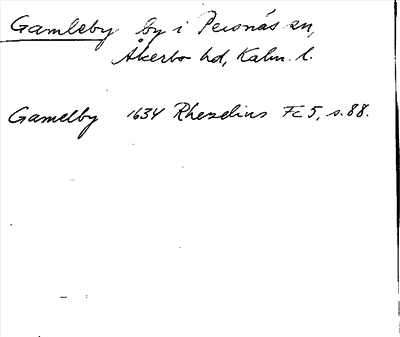 Gamleby by i Persnäs sn,
Åkerbo hd, Kalm. l.
Gamelby 1634 Rhezelius Fc 5, s. 88.